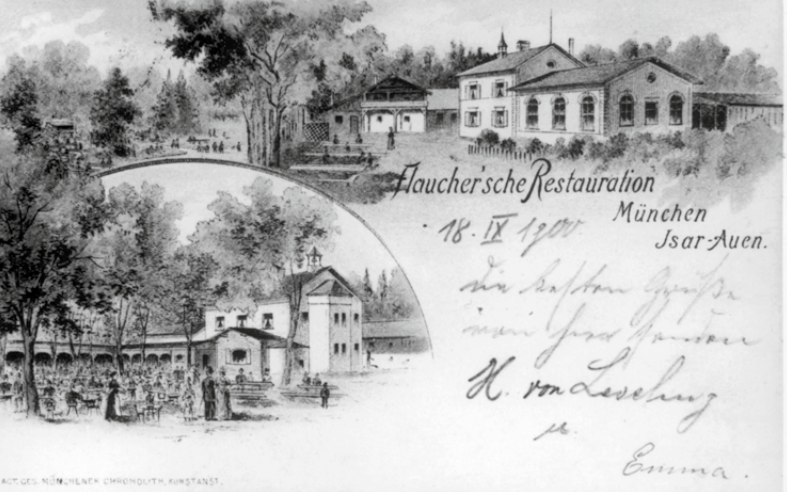 Flaucher'sche Restauration
München
Isar-Auen.
18. IX 1900
die besten Grüße
von hier senden
H. von Leveling
u.
Emma.
ACT. GES. MÜNCHENER CHROMOLITH. KUNSTANST.